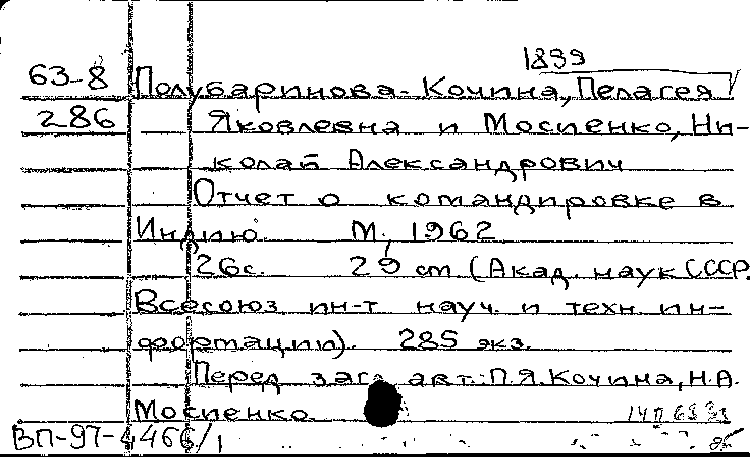 1899
63-8 Полубаринова-Кочина, Пелагея
286 Яковлевна и Мосиенко, Ни-
колай Александрович
Отчет о командировке в
Индию. М., 1962
26с. 29 cm. (Акад. наук СССР.
Всесоюз. ин-т науч. и техн. ин-
формации). 285 экз.
Перед загл. авт.: П.Я.Кочина, Н.А.
Мосиенко
ВП-97-4466/1